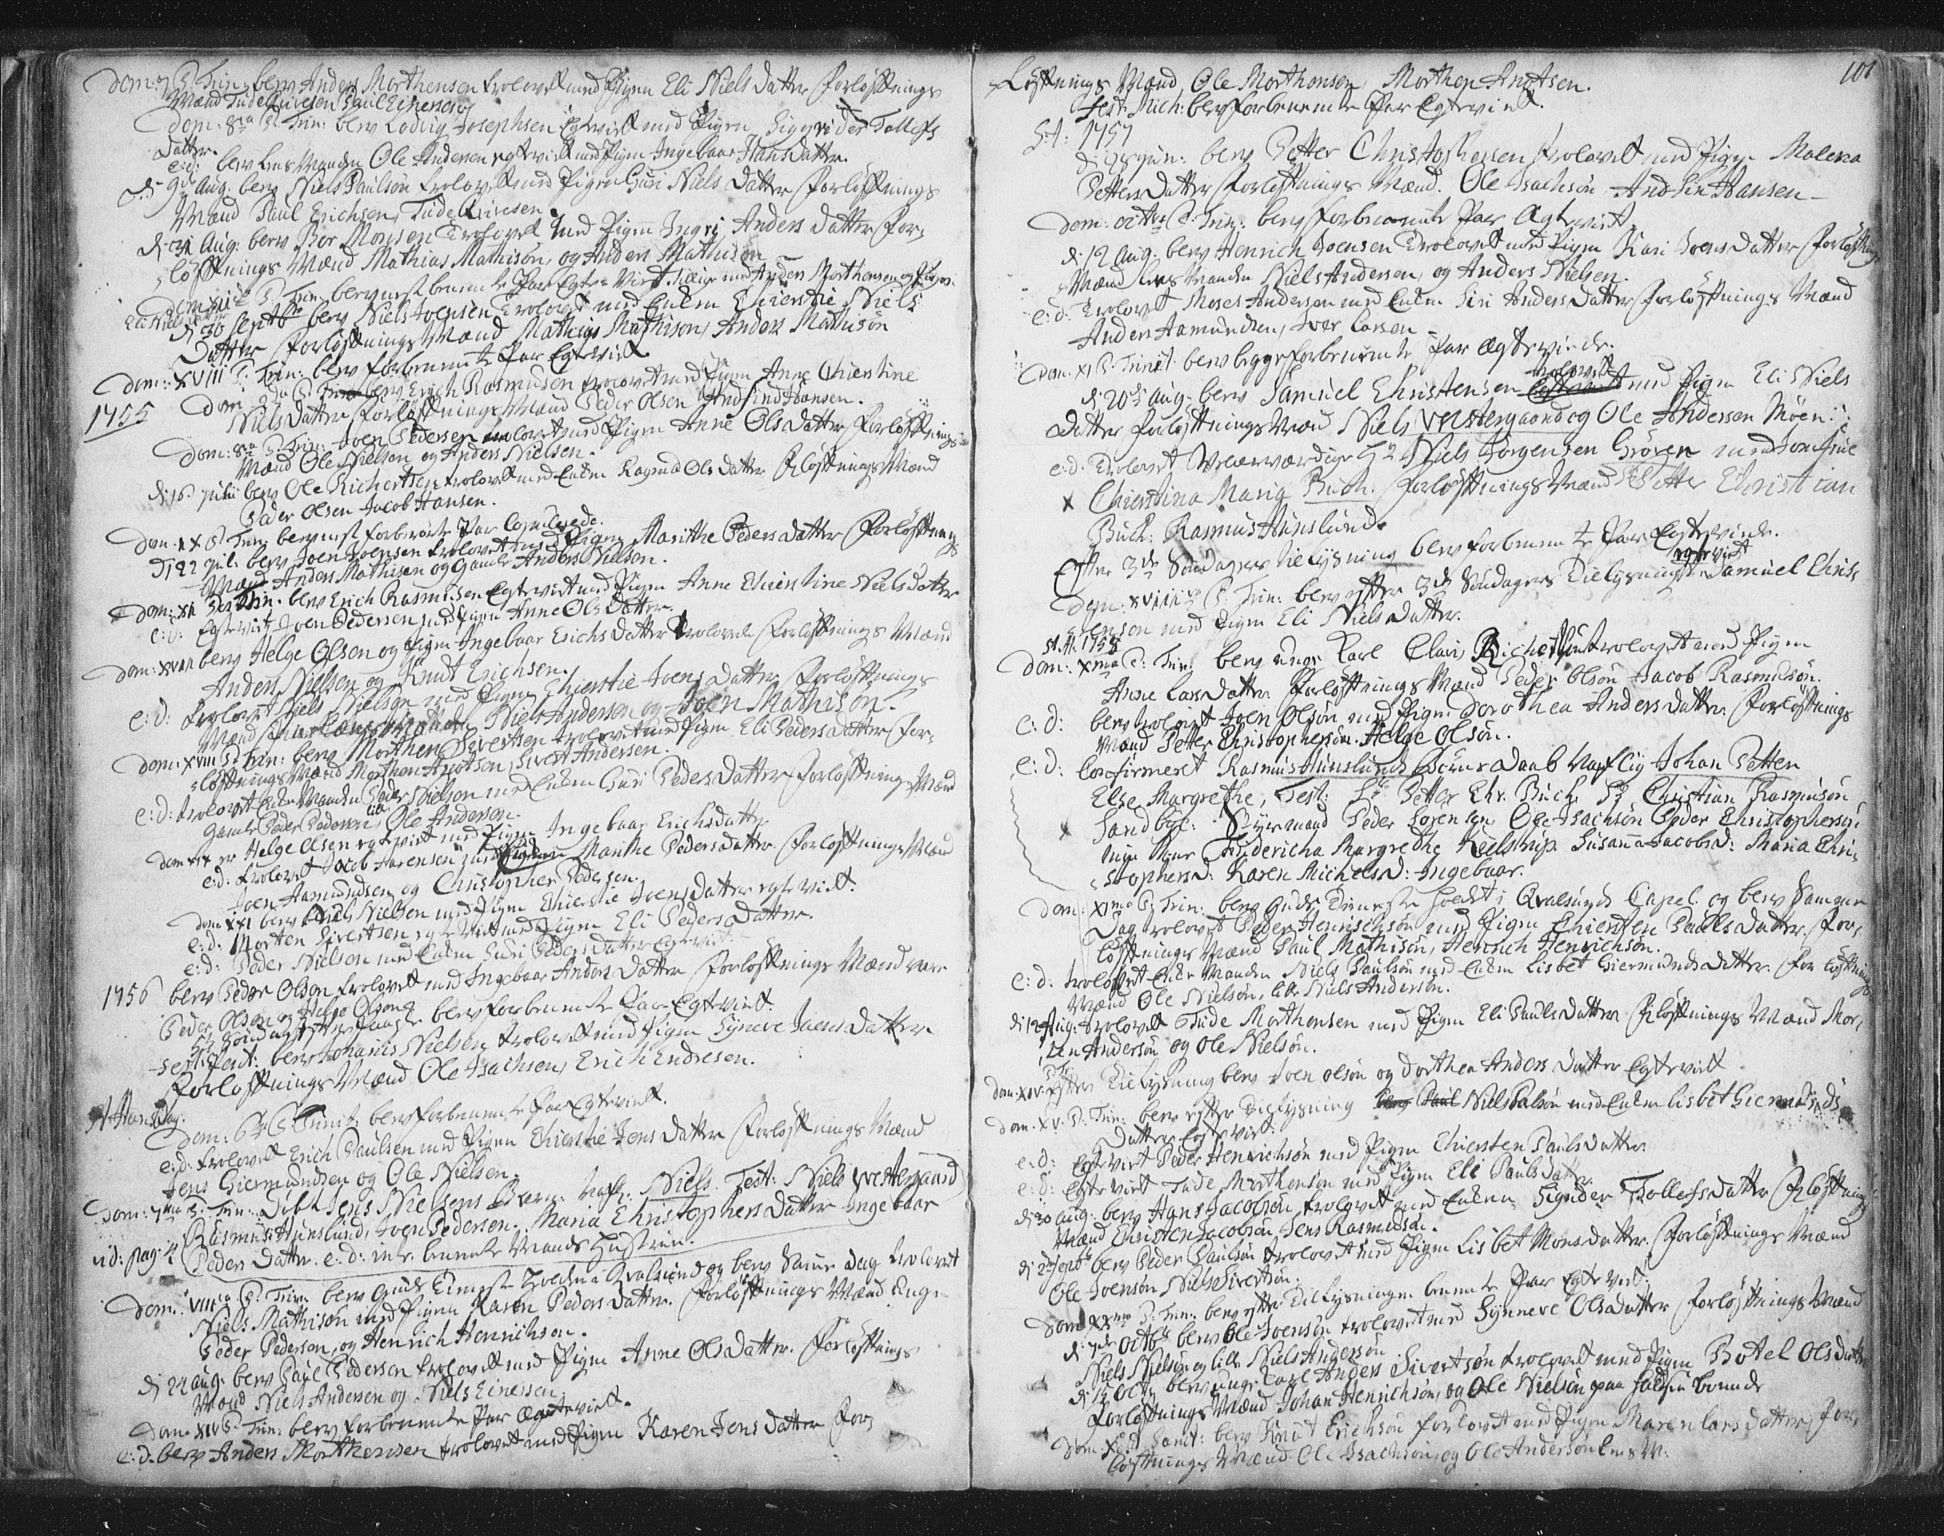 Dom: 7 P. Trin: blev Anders Morthensen trolovet med Pigen Eli Niels Datter Forløftnings
Mænd Tude Siversen Paul Einersen
Dom: 8va P. Trin: blev Lodvig Josephsen Egteviet med Pigen Siggri der Tollefs
Datter.
e:d: blev Enke Manden Ole Andersen egteviet med Pigen Ingebaar Hans Datter.
d: 9de Aug: blev Niels Paulsøn trolovet med Pigen Guri Niels Datter Forløftnings
Mænd Paul Erichsen, Tude Siversen.
Aug: blev Monsen Trolovet med Pigen Ingri Anders Datter For,
løftnings Mænd Mathias Mathisøn, og Anders Mathisøn
P. Trin: blev næstbenente Par Egte Viet Morthensen og Pigen
Eli Niels
d: 30 Septbr blev Niels Joensen Trolovet med Enken Chierstie Niels
Datter Forløftnings Mænd Mathias Mathisøn, Anders Mathisøn
Dom: XVIII P. Trin: blev forbenente Par Egteviet
1755
Dom P. Trin blev Erich Rasmusen trolovet med Pigen Anne Chiestine
Niels Datter Forløftnings Mænd Peder Olsen Hansen.
Dom: 8va P. Trin: Joen Pedersen trolovet med Pigen Anne Ols Datter Forløftnings
Mænd Ole Nielsen og Anders Nielsen.
d: 16 Julii blev Ole Richertsen trolovet med Enken Ragnild Ols Datter Forløftnings Mænd
Peder Olsen Jacob Hansen.
Dom: IX P. Trin: blev næst forbenente Par
D: 22 Jul: blev Joen Joensen trolovet med Pigen Marithe Peders Datter Forløftnings
Mænd Anders Mathisen og Gamle Anders Nielsen.
Dom: XI P. Trin: blev Erich Rasmusen Egteviet med Pigen Anne Chierstine Niels Datter
e:d: Egteviet Joen Pedersen med Pigen Anne Ols Datter.
Dom: XVII blev Helge Olsen og Pigen Ingebaar Erichs Datter trolovede Forløftnings Mænd
Anders Nielsen og Knut Erichsen.
e:d: trolovet Niels Nielsen med Pigen Chierstie Joens Datter Forløftnings
Mænd Niels Andersen og Joen Mathisen.
Dom: XVIII P. Trin: blev Morthen Sivertsen trolovet med Pigen Eli Peders Datter For,
løftnings Mænd Morthen Knotsen, Sivert Andersen.
e:d: trolovet Enke Manden Peder Nielsen med Enken Guri Peders Datter Forløftnings Mænd
Gamle Peder Pedersen, Ole Andersen.
Dom: XIX er Helge Olsen egteviet med Pigen Ingebaar Erichs datter
e:d: trolovet Jacob Marithe Peders Datter. Forløftnings Mænd
Joen Aamundsen og Christopher Pedersen.
Dom: XXI blev Niels Nielsen med Pigen Chierstie Joens Datter egteviet.
e:d: Morten Sivertsen egteviet med Pigen Eli Peders Datter.
e:d: Peder Nielsen med Enken Guri Peders Datter Egteviet.
1756 blev Peder Olsen trolovet med Ingebaar Anders Datter Forløftnings Mænd var
Peder Olsen og Helge Olsen.
Søndag efter Paaske blev forbenente Par Egteviet.
blev Johanis Nielsen trolovet med Pigen Synneve Joens Datter
Forløftnings Mænd Ole Isachsen, Erich Endresen.
St Hans Dag.
Dom: 6te P. Trinit: blev forbenente Par Egteviet.
e:d: trolovet Erich Paulsen med Pigen Chierstie Jens Datter Forløftnings Mænd
Jens Giermundsen og Ole Nielsen.
Dom: 7ma P. Trin: Døbt Jens Nielsens Barn: Nafn: Niels. Test: Niels Westergaard
Rasmus Hunslund, Joen Pedersen. Maria Christophers Datter Ingebaar
vid: pag: 4 Peders Datter. e:d: benente Mands Hustru.
Dom: VIII P. Trin: blev Guds Tieneste holden i Qvalsund og blev samme Dag trolovet
Niels Mathisøn med Pigen Karen Peders Datter. Forløftnings Mænd Unge
Peder Pedersen, og Henrich Henrichsen.
d: 24 Aug: blev Paul Pedersen trolovet med Pigen Anne Ols Datter. Forløftnings
Mænd Niels Andersen og Niels Einersen.
Dom: XIV P. Trin: blev forbenente Par Egteviet.
e:d: blev Anders Morthensen trolovet med Pigen Karen Jens Datter For,
101
Løftnings Mænd Ole Morthensen, Morthen Knotsen.
Fest: Mich: blev forbenente Par Egteviet.
1757
blev Petter Christophersen trolovet med Pigen Malena
Petters Datter Forløftnings Mænd. Ole Isachsøn Hansen
Dom: P. Trin: blev forbenente Par Egteviet
d: 12 Aug: blev Henrich Joensen Trolovet med Pigen Kari Joens Datter Forløftnings
Mænd Enke Manden Niels Andersen, og Anders Nielsen.
e:d: Trolovet Moses Andersen med Enken Siri Anders Datter Forløftnings Mænd
Anders Aamundsen, Iver Larsen
Dom. XI P. Trinit: blev begge forbenente Par Egteviede.
trolovet
d: 20de Aug: blev Samuel Christensen med Pigen Eli Niels
Datter Forløftnings Mænd Niels Westergaard og Ole Andersen Moen.
e:d: Trolovet Velærværdige Hr Niels Jørgensen Grøven med Jomfrue
x Chierstina Maria Buch. Forløftnings Mænd Petter Christian
Buch. Rasmus Hunslund.
Efter 3de Søndagers Tielysning blev forbenente Par Egteviede.
egteviet
Dom. XVIII P. Trin: blev efter 3de Søndagers Tielysning Samuel Chris,
tensen med Pigen Eli Niels Datter.
1758
Dom: Xma P. Trin: blev unge Karl Claus Richertsen trolovet med Pigen
Anne Lars Datter Forløftnings Mænd Peder Olsøn Jacob Rasmusøn.
e:d: blev trolovet Joen Olsøn med Pigen Dorothea Anders Datter. Forløftnings
Mænd Petter Christophersøn. Helge Olsøn.
e:d: Confirmeret Rasmus Hunslunds Børns Daab Nafnlig Johan Petter
Else Margrethe, Test: Sr Petter Chr. Buch Sr Christian Rasmusøn
x Sandboe: Styrmand Peder Sørensen Ole Isachsøn Peder Christophersøn
min Friderichа Margrethe Kielstrup Susanna Jacobsd: Maria Chri,
stophersd: Karen Michelsd: Ingebaar.
Dom: XImo P. Trin: blev Guds Tieneste holdt i Qvalsunds Capel og blev samme
Dag trolovet Peder Henrichsøn med Pigen Chiersten Pauls Datter. For,
løftnings Mænd Paul Mathisøn, Henrich Henrichsøn.
e:d: trolovet Enke Manden Niels Paulsøn med Enken Lisbet Giermunds Datter. Forløftnings
Mænd Ole Nielsøn, lille Niels Andersøn.
d: 12 Aug: trolovet Tude Morthensen med Pigen Eli Pauls Datter Forløftnings Mænd Mor,
ten Andersøn og Ole Nielsøn.
Dom: XIV efter Tielysning blev Joen Olsøn og Dorthea Anders Datter Egteviet
Dom: XV. P. Trin: blev efter Tielysning Niels Palsøn med Enken Lisbet Giermunds
Datter Egteviet.
e:d: Egteviet Peder Henrichsøn med Pigen Chiersten Pauls Datter.
e:d: Egteviet Tude Morthensen med Pigen Eli Pauls Dat
d: 30 Aug: blev Hans Jacobsøn trolovet med Enken Tollefs Datter Forløftnings
Mænd Christen Jacobsøn, Jens Rasmusøn.
d: Septbr blev Peder Paulsøn trolovet med Pigen Lisbet Mons Datter. Forløftnings Mænd
Ole Joensøn Niels Sivertsøn.
Dom: XX P. Trin: blev efter Tiellysningen benente Par Egteviet.
d: 7de Octbr blev Ole Joensøn trolovet med Synneve Ols Datter Forløftnings Mænd
Niels Nielsøn og lille Niels Andersøn
d: Octbr blev unge Karl Anders Sivertsøn trolovet med Pigen Botel Ols datter
Forløftnings Mænd Johan Henrichsøn, og Ole Nielsøn paa boende
Dom: blev Knut Erichsøn forlovet med Pigen Maren Lars datter, For,
løftnings Mænd. Ole Isachsøn, og Ole Andersøn